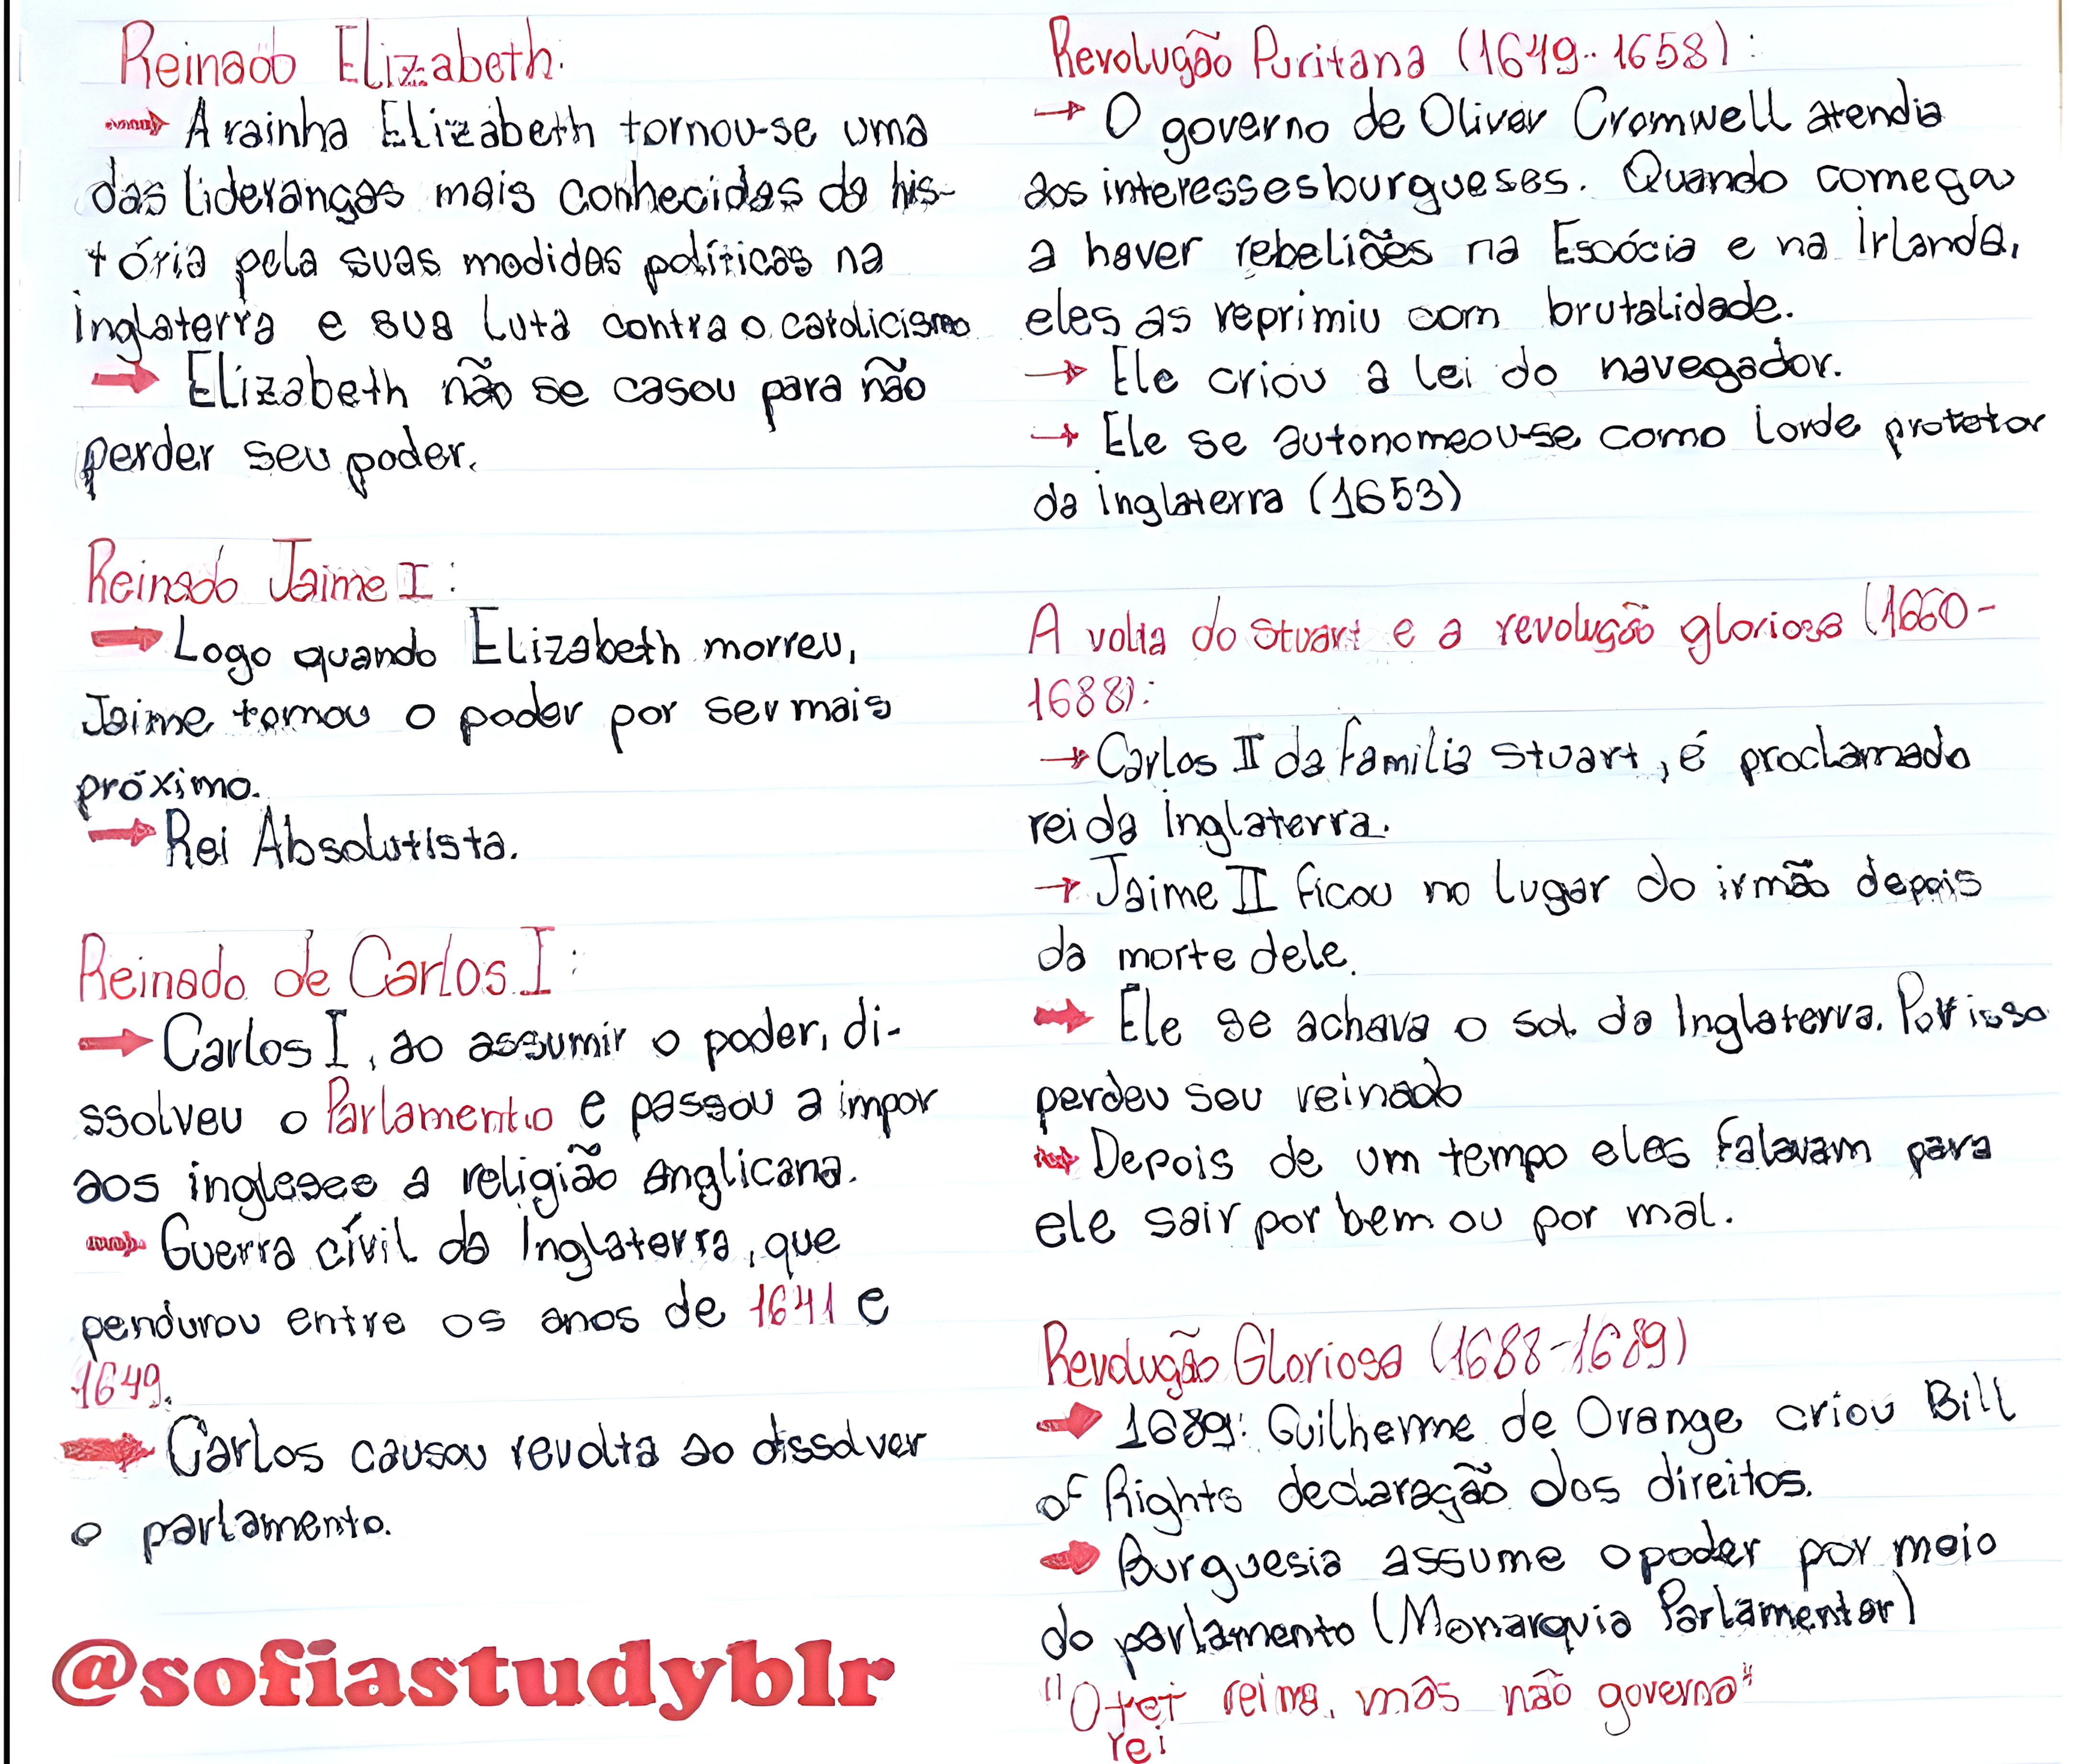 Reinado Elizabeth:
→ A rainha Elizabeth tornou-se uma
das lideranças mais conhecidas da his-
tória pela suas medidas políticas na
inglaterra e sua luta contra o catolicismo
→ Elizabeth não se casou para não
perder seu poder.
Reinado Jaime I:
→ Logo quando Elizabeth morreu,
Jaime tomou o poder por ser mais
próximo.
→ Rei Absolutista.
Reinado de Carlos I:
→ Carlos I, ao assumir o poder, di-
ssolveu o Parlamento e passou a impor
aos ingleses a religião anglicana.
→ Guerra cívil da Inglaterra, que
pendurou entre os anos de 1641 e
1649.
→ Carlos causou revolta ao dissolver
o parlamento.
@sofiastudyblr
Revolução Puritana (1649-1658):
→ O governo de Oliver Cromwell atendia
aos interesses burgueses. Quando começou
a haver rebeliões na Escócia e na Irlanda,
eles as reprimiu com brutalidade.
→ Ele criou a lei do navegador.
→ Ele se autonomeou-se como Lorde protetor
da inglaterra (1653)
A volta do Stuart e a revolução gloriosa (1660-
1688):
→ Carlos II da familia Stuart, é proclamado
rei da inglaterra.
→ Jaime II ficou no lugar do irmão depois
da morte dele.
→ Ele se achava o sol da Inglaterra. Por isso
perdeu seu reinado
→ Depois de um tempo eles falavam para
ele sair por bem ou por mal.
Revolução Gloriosa (1688-1689)
→ 1689: Guilherme de Orange criou Bill
of Rights declaração dos direitos.
→ Burguesia assume o poder por meio
do parlamento (Monarquia Parlamentar)
"O rei reina, mas não governa"
rei